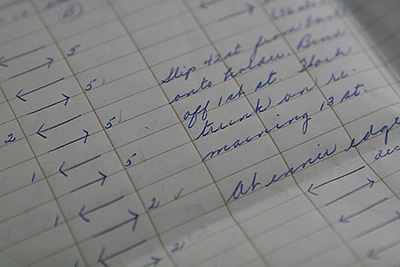 5
Slip 42 st. from
onto holder. Bind
5
off 1 ch st. Work
trunk on re-
2
5
maining 13 st.
1
5
At inner edge
1
2
2